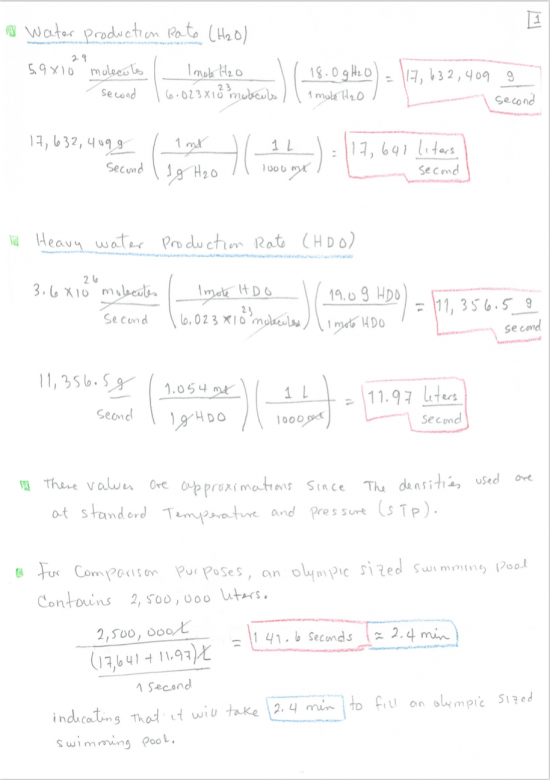 1
Water production Rate (H2O)
5.9×10^29 molecules/second (1 mole H2O / 6.023×10^23 molecules) (18.0 g H2O / 1 mole H2O) = 17,632,409 g/second
17,632,409 g/second (1 ml / 1 g H2O) (1 L / 1000 ml) = 17,641 liters/second
Heavy water Production Rate (HDO)
3.6×10^26 molecules/second (1 mole HDO / 6.023×10^23 molecules) (19.0 g HDO / 1 mole HDO) = 11,356.5 g/second
11,356.5 g/second (1.054 ml / 1 g HDO) (1 L / 1000 ml) = 11.97 liters/second
These values are approximations since The densities used are
at standard Temperature and pressure (STP).
For Comparison Purposes, an olympic sized swimming Pool
Contains 2,500,000 liters.
2,500,000 L / ((17,641 + 11.97) L / 1 second) = 141.6 seconds ≈ 2.4 min
indicating that it will take 2.4 min to fill an olympic sized
swimming pool.